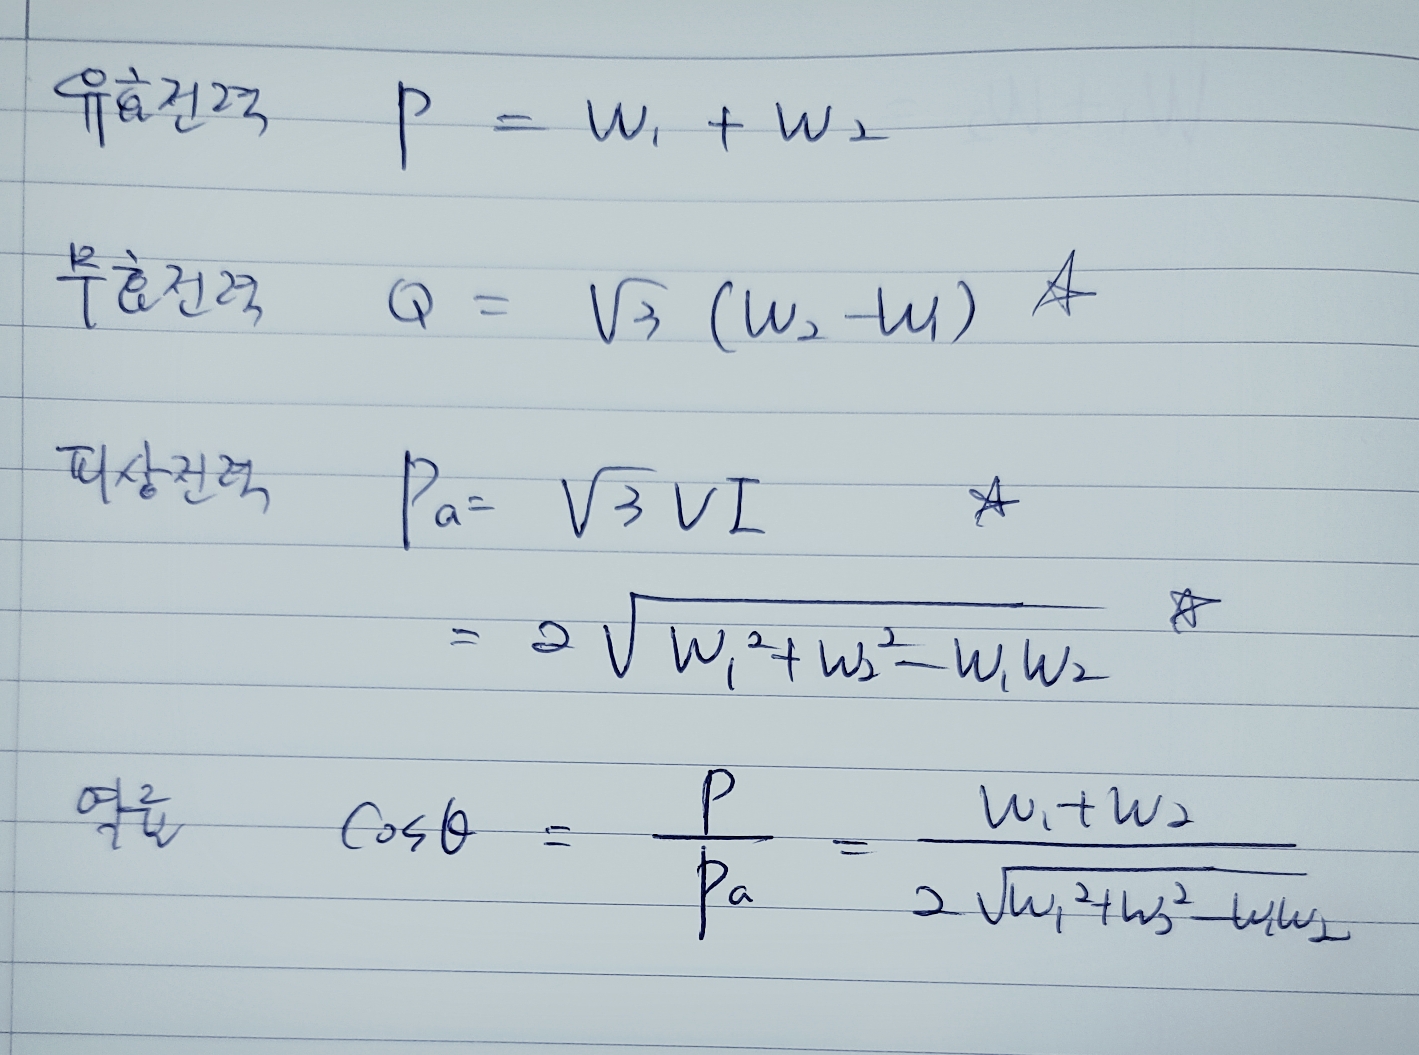 유효전력 P = W₁ + W₂
무효전력 Q = √3 (W₂ - W₁) ☆
피상전력 Pa = √3 VI ☆
= 2 √(W₁² + W₂² - W₁W₂) ☆
역률 Cosθ = P / Pa = (W₁ + W₂) / (2 √(W₁² + W₂² - W₁W₂))